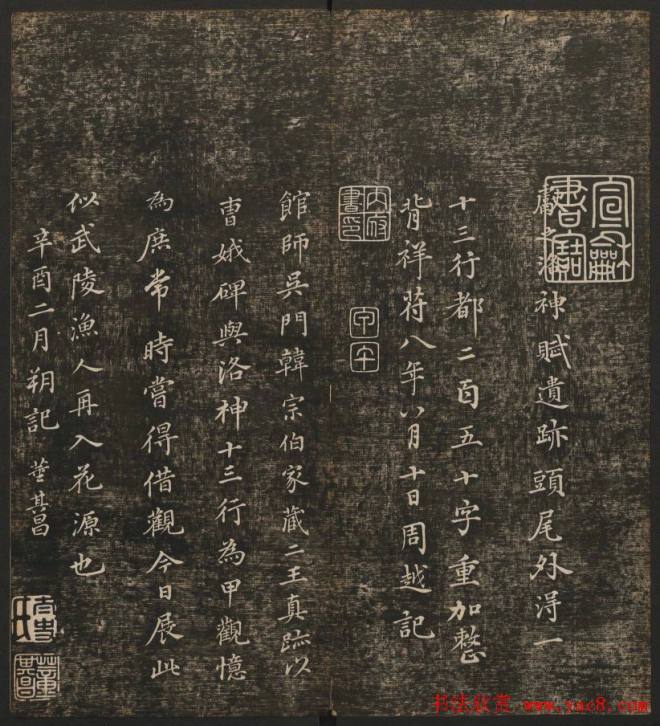 獻之洛神賦遺跡頭尾外得一
十三行都二百五十字重加整
背祥符八年八月十日周越記
內府書印
館師吳門韓宗伯家藏二王真跡以
曹娥碑與洛神十三行為甲觀憶
為庶常時嘗得借觀今日展此
似武陵漁人再入花源也
辛酉二月朔記 董其昌
董其昌
书法欣赏 www.yac8.com